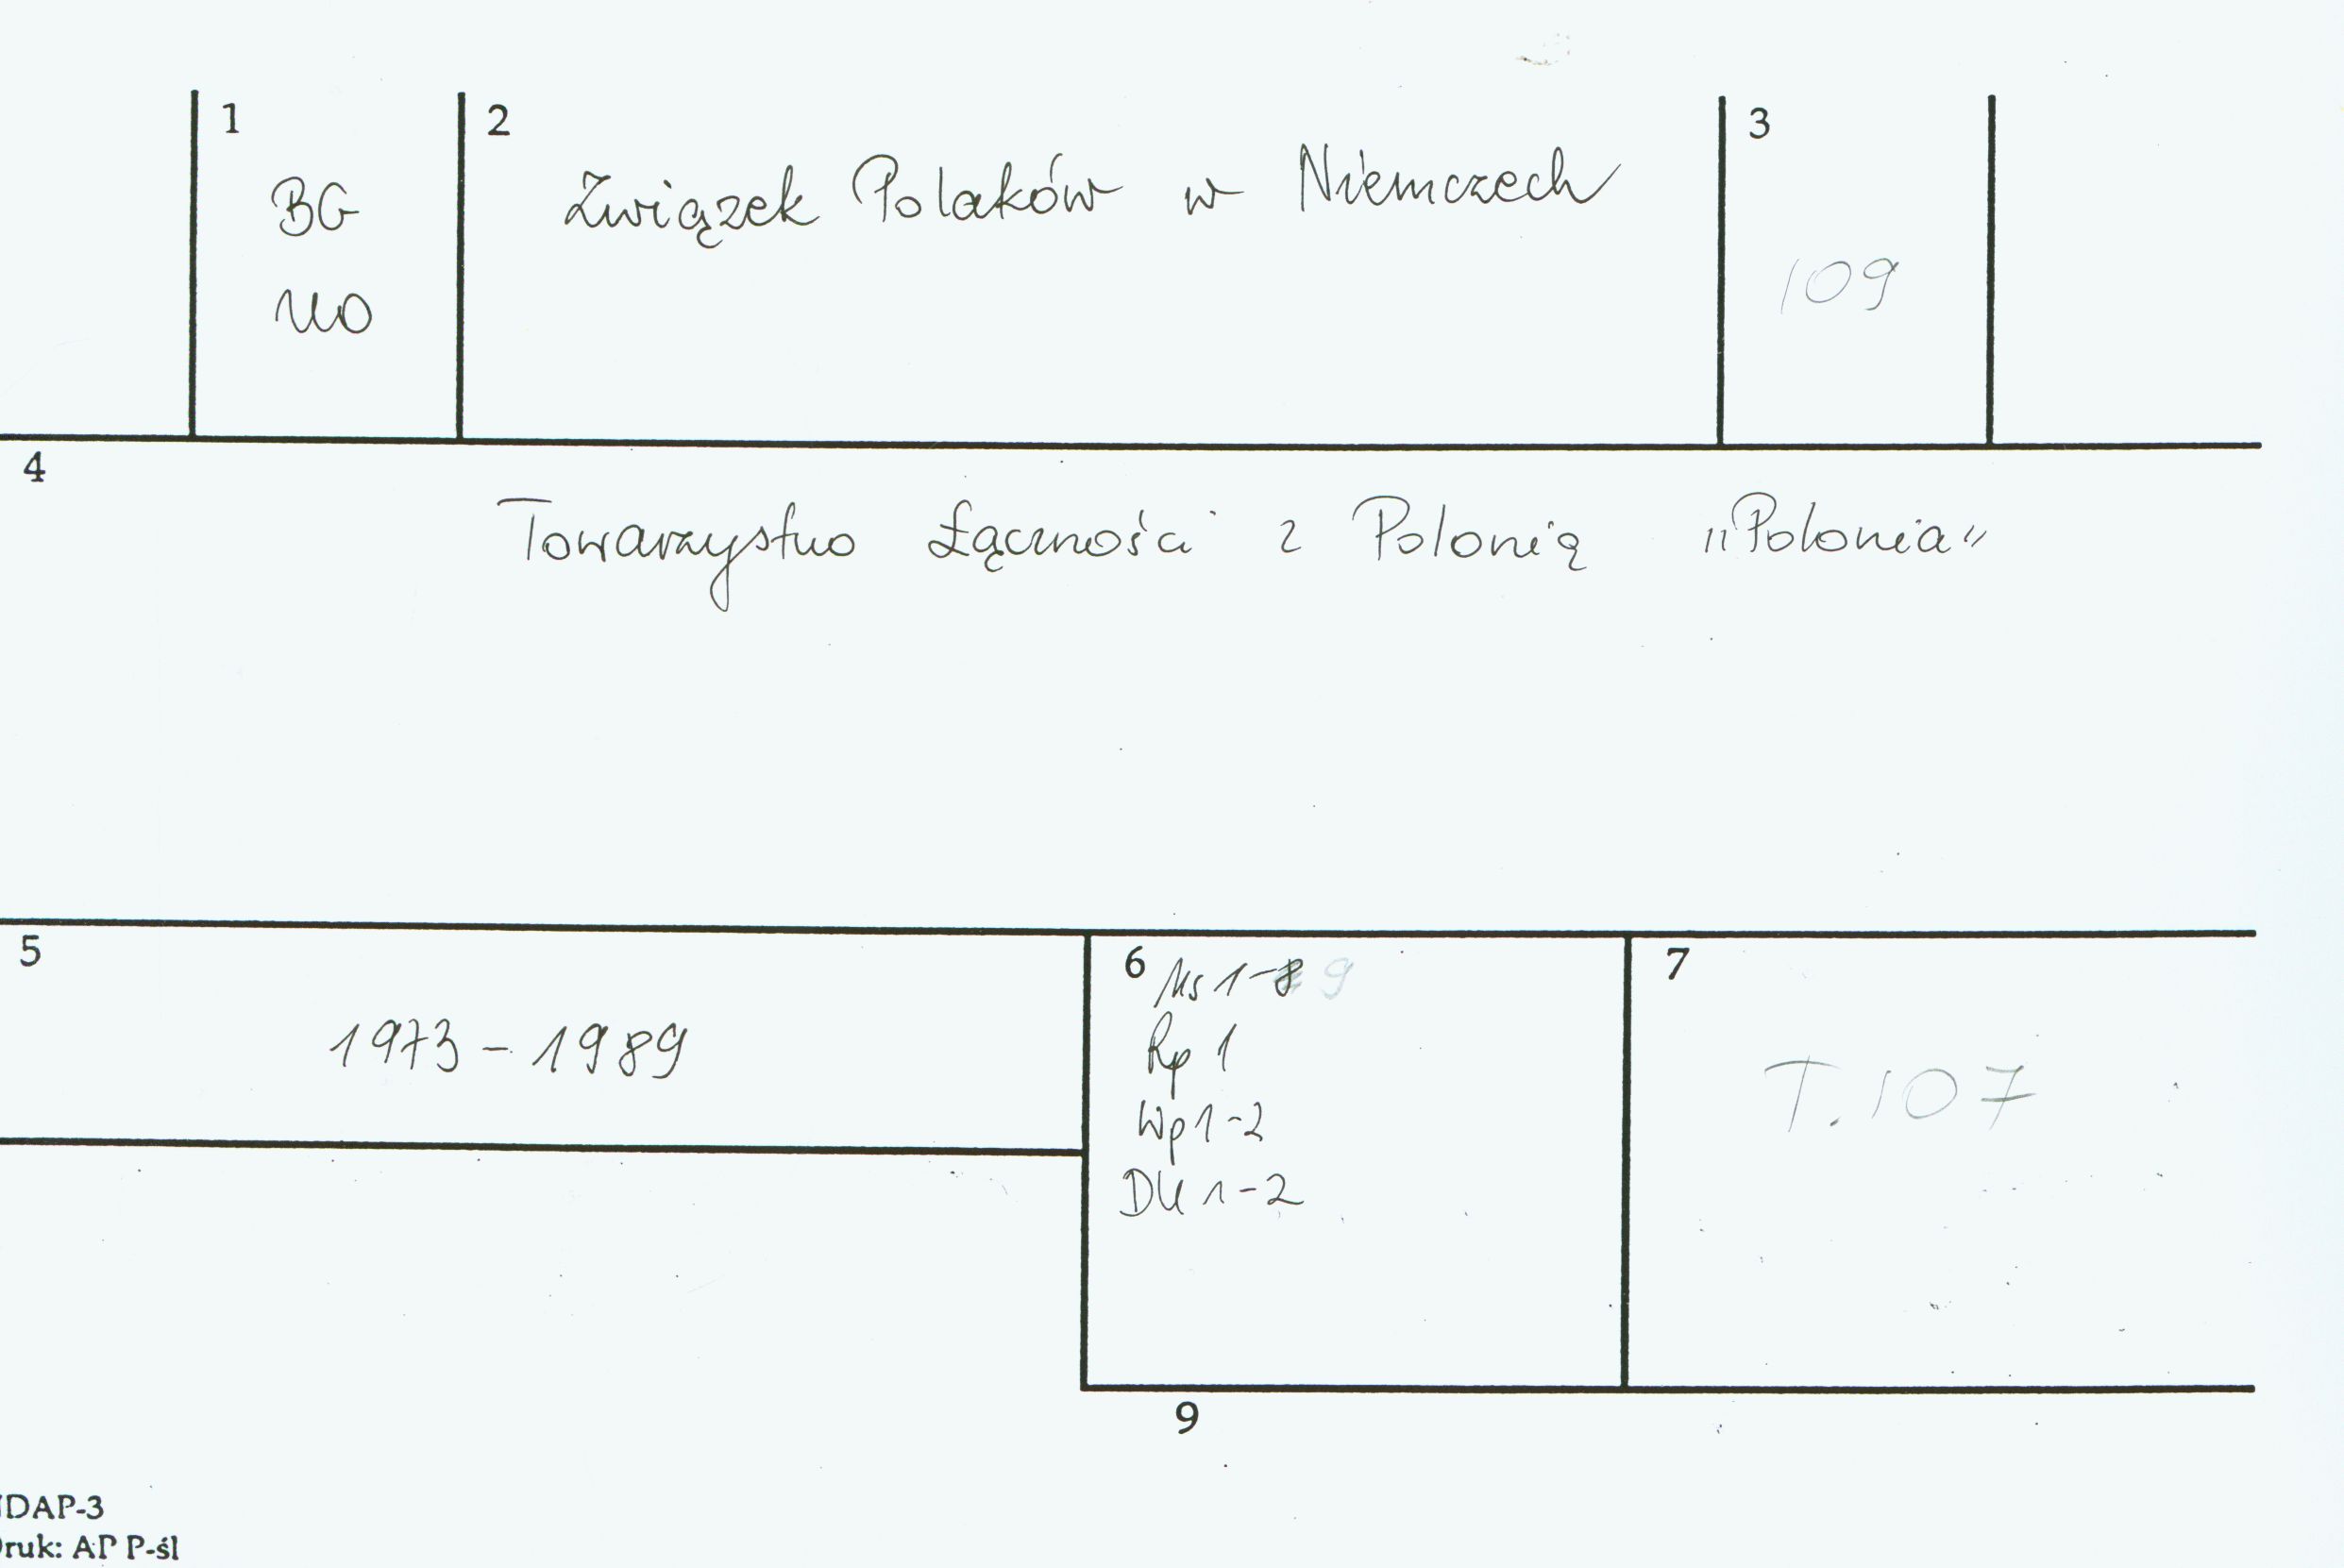 1
BG
UO
2
Związek Polaków w Niemczech
3
109
4
Towarzystwo Łączności z Polonią „Polonia”
5
1973 - 1989
6
Ms 1-8 9
Rp 1
Wp 1-2
DU 1-2
7
T. 107
9
NDAP-3
Druk: AP P-śl